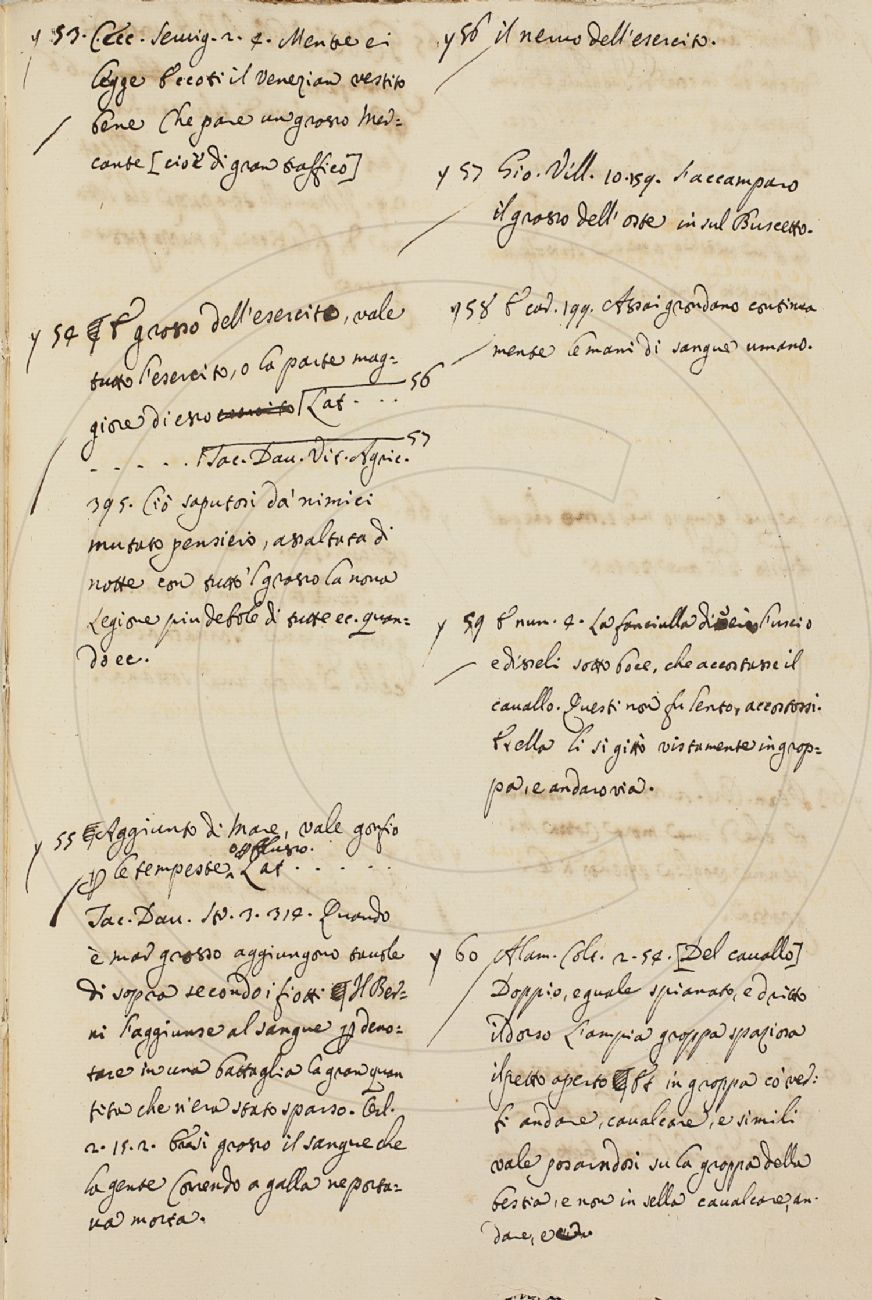 y 53. Cecc. Servig. 2. 4. Mentre ei
legge Eccoti il Venezian vestito
bene Che pare un grosso Mer=
cante [cioè di gran traffico]
y 54 ¶ E grosso dell'esercito, vale
tutto l'esercito, o la parte mag=
giore di esso Lat. . . . 56
. . . . . Tac. Dav. Vit. Agric. 57
395. Ciò saputosi da' nimici
mutato pensiero, assaltata di
notte con tutto 'l grosso la nona
Legione piu debole di tutte ec. quan=
do ec.
y 55 ¶ Aggiunto di Mare, vale gonfio
p le tempeste, o flusso. Lat. . . . . .
Tac. Dav. St. 3. 314. Quando
è mar grosso aggiungono tavole
di sopra secondo i fiotti ¶ Il Ber=
ni l'aggiunse al sangue p deno=
tare in una battaglia la gran quan
tità che n'era stato sparso. Orl.
2. 15. 2. grosso il sangue che
la gente Correndo a galla ne porta=
va morta.
y 56 il nervo dell'esercito.
y 57 Gio. Vill. 10. 159. S'accamparo
il grosso dell'oste in sul Buscetto.
y 58 E cod. 199. Assai grondano continua
mente le mani di sangue umano.
y 59 E num. 4. La fanciulla l'uscio
e disseli sotto boce, che accostasse il
cavallo. Questi non fu lento, accostossi.
Et ella li si gittò vistamente in grop=
pa, e andaro via.
y 60 Alam. Colt. 2. 54. [Del cavallo]
Doppio, eguale spianato, e dritto
il dorso L'ampia groppa spaziosa
il petto aperto ¶ Et in groppa co' ver:
bi andare, cavalcare, e simili
vale posandosi su la groppa della
bestia, e non in sella cavalcare, an.
dare, e